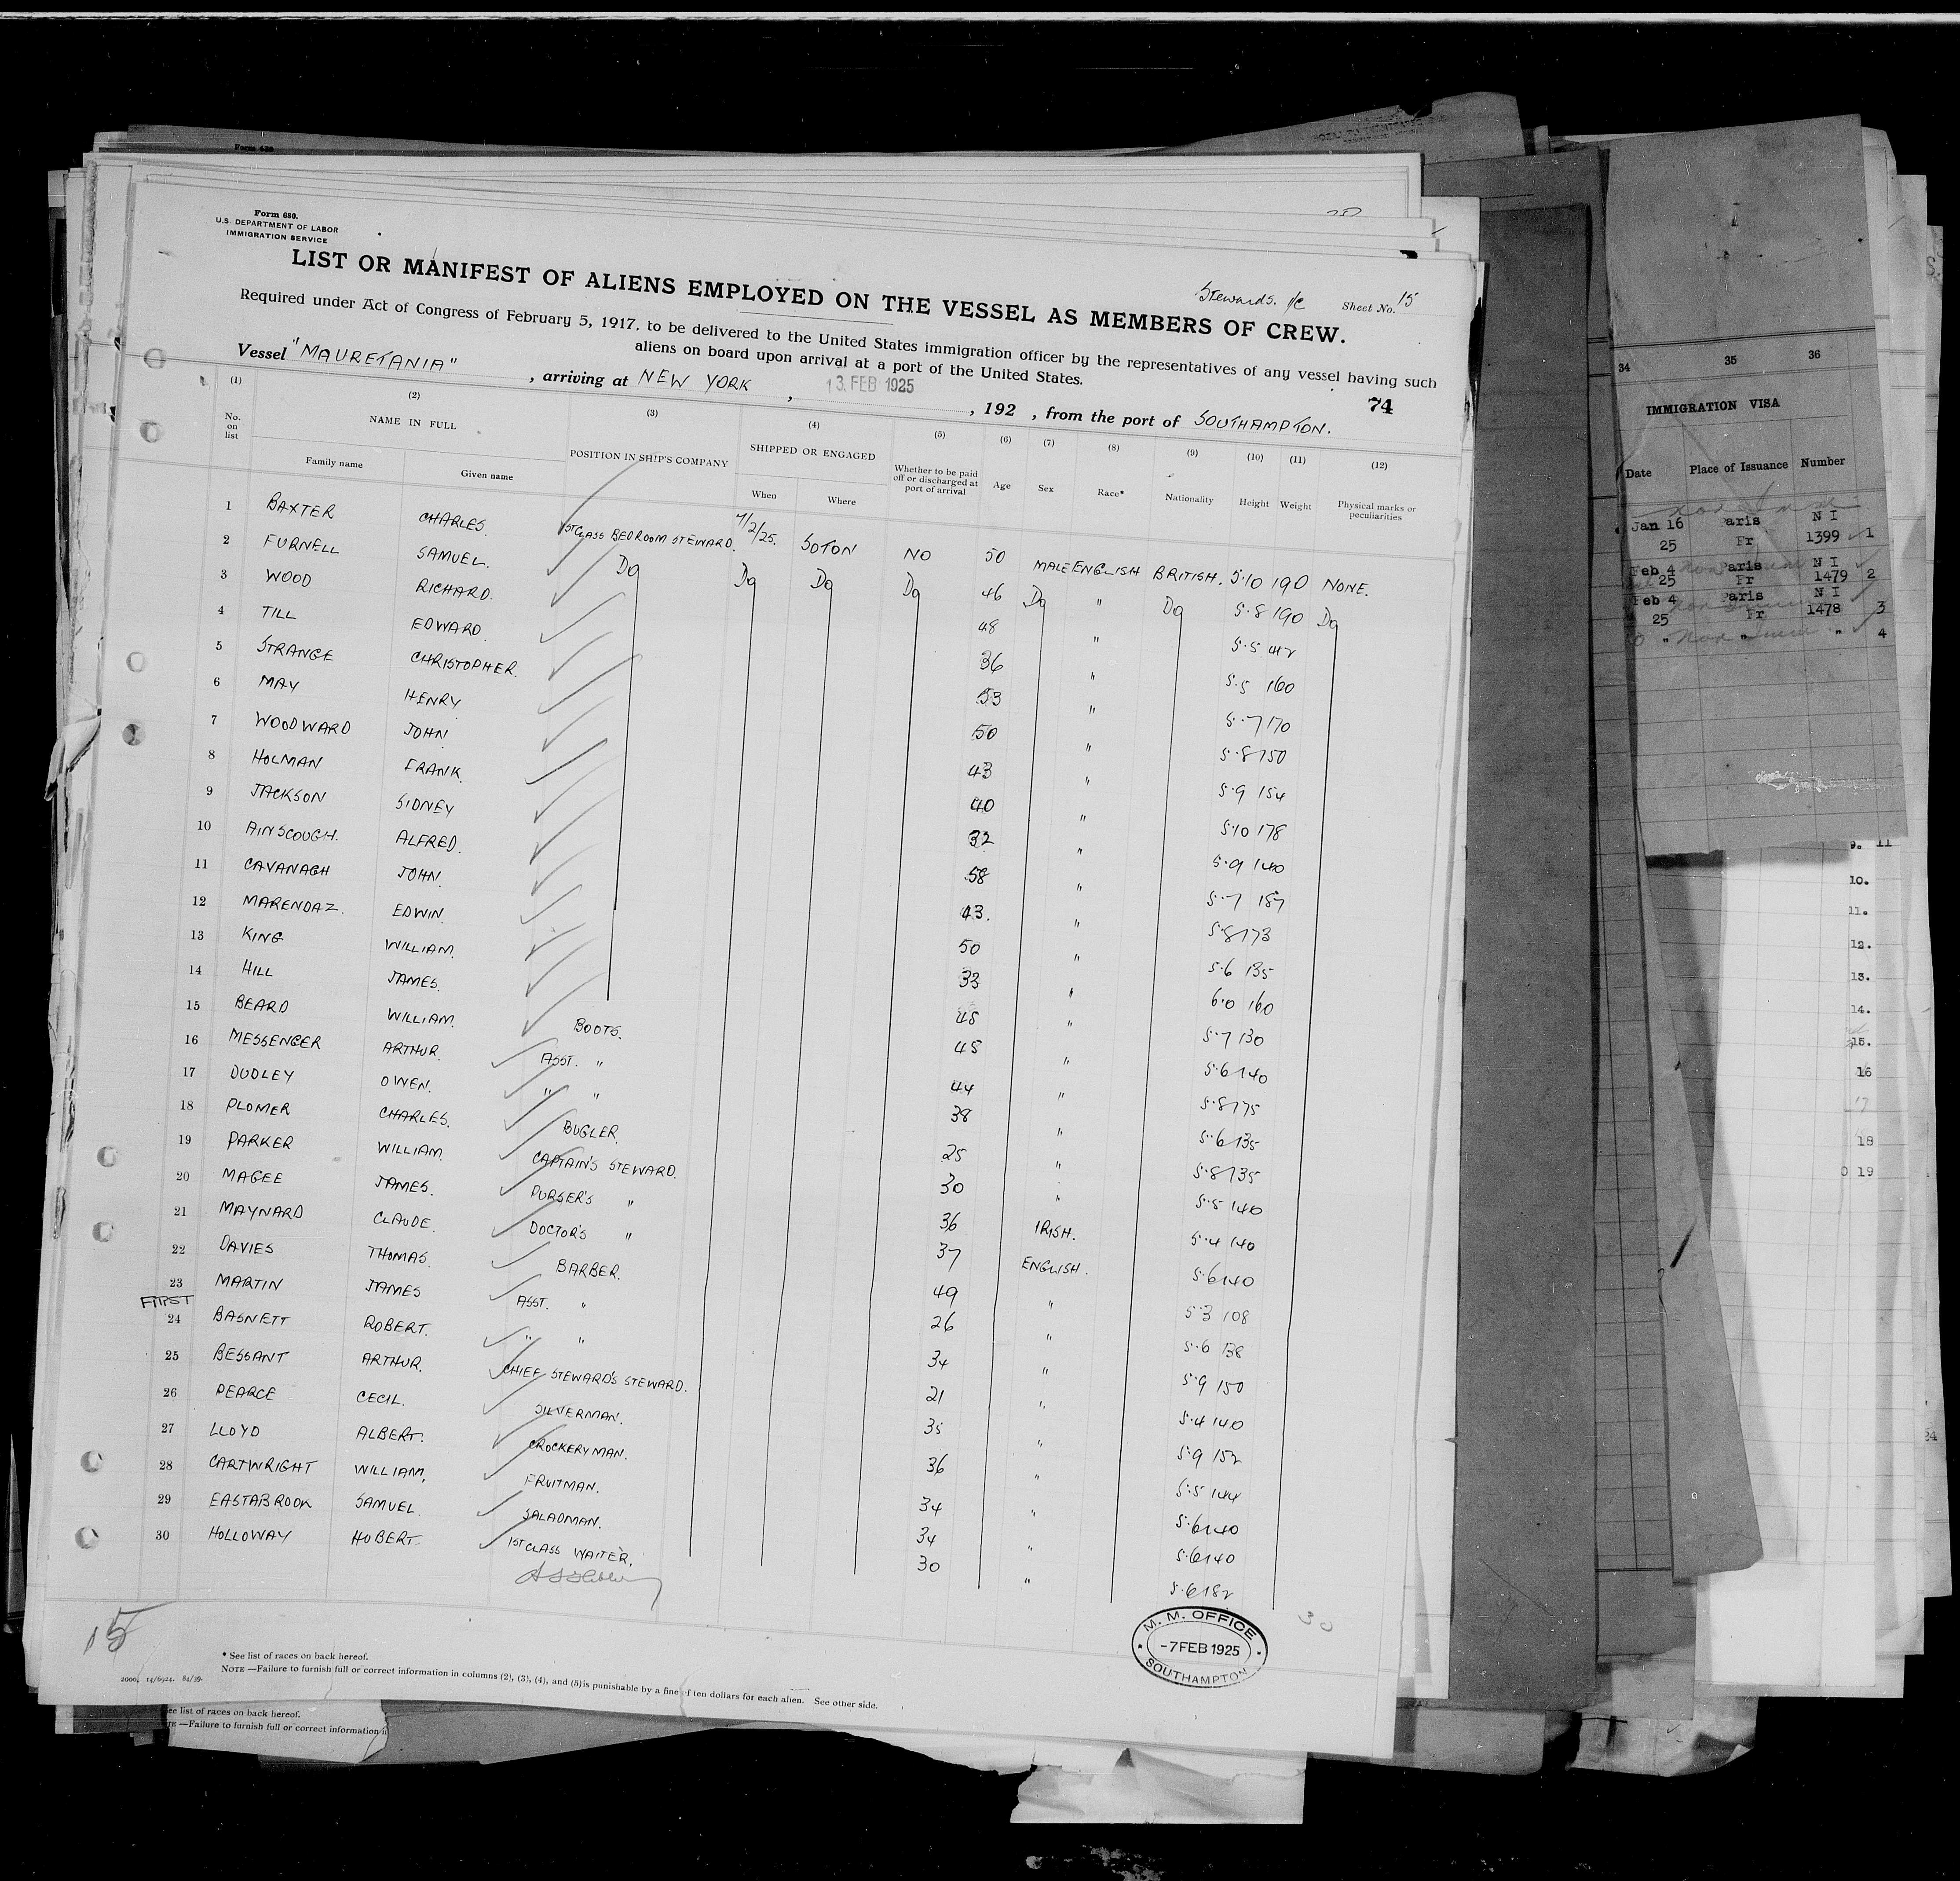 Form 680.
U.S. DEPARTMENT OF LABOR
IMMIGRATION SERVICE
Stewards. Sheet No. 15
LIST OR MANIFEST OF ALIENS EMPLOYED ON THE VESSEL AS MEMBERS OF CREW.
Required under Act of Congress of February 5, 1917, to be delivered to the United States immigration officer by the representatives of any vessel having such
aliens on board upon arrival at a port of the United States.
74
Vessel "MAURETANIA" , arriving at NEW YORK , 13 FEB 1925 , 192 , from the port of SOUTHAMPTON.
(1) (2) (3) (4) (5) (6) (7) (8) (9) (10) (11) (12)
No. on list NAME IN FULL POSITION IN SHIP'S COMPANY SHIPPED OR ENGAGED Whether to be paid off or discharged at port of arrival Age Sex Race* Nationality Height Weight Physical marks or peculiarities
Family name Given name When Where
1 BAXTER CHARLES. 1ST CLASS BEDROOM STEWARD. 7/2/25. SOTON NO 50 MALE ENGLISH BRITISH. 5·10 190 NONE.
2 FURNELL SAMUEL. Do Do Do Do 46 Do " Do 5·8 190 Do
3 WOOD RICHARD. 48 " 5·5 142
4 TILL EDWARD. 36 " 5·5 160
5 STRANGE CHRISTOPHER. 53 " 5·7 170
6 MAY HENRY 50 " 5·8 150
7 WOODWARD JOHN 43 " 5·9 154
8 HOLMAN FRANK. 40 " 5·10 178
9 JACKSON SIDNEY 32 " 5·9 140
10 AINSCOUGH. ALFRED. 58 " 5·7 187
11 CAVANAGH JOHN. 43. " 5·8 173
12 MARENDAZ. EDWIN. 50 " 5·6 135
13 KING WILLIAM. 33 " 6·0 160
14 HILL JAMES. 48 " 5·7 130
15 BEARD WILLIAM. BOOTS. 45 " 5·6 140
16 MESSENGER ARTHUR. ASST. " 44 " 5·8 175
17 DUDLEY OWEN. " " 38 " 5·6 135
18 PLOMER CHARLES. BUGLER. 25 " 5·8 135
19 PARKER WILLIAM. CAPTAIN'S STEWARD. 30 " 5·5 140
20 MAGEE JAMES. PURSER'S " 36 IRISH. 5·4 140
21 MAYNARD CLAUDE. DOCTOR'S " 37 ENGLISH. 5·6 140
22 DAVIES THOMAS. BARBER. 49 " 5·3 108
23 MARTIN JAMES ASST. " 26 " 5·6 138
FIRST
24 BASNETT ROBERT. " " 34 " 5·9 150
25 BESSANT ARTHUR. CHIEF STEWARD'S STEWARD. 21 " 5·4 140
26 PEARCE CECIL. SILVERMAN. 35 " 5·9 152
27 LLOYD ALBERT. CROCKERYMAN. 36 " 5·5 144
28 CARTWRIGHT WILLIAM. FRUITMAN. 34 " 5·6 140
29 EASTABROOK SAMUEL. SALADMAN. 34 " 5·6 140
30 HOLLOWAY HUBERT. 1ST CLASS WAITER. 30 " 5·6 182
30
15
M. M. OFFICE
-7 FEB 1925
SOUTHAMPTON
* See list of races on back hereof.
NOTE —Failure to furnish full or correct information in columns (2), (3), (4), and (5) is punishable by a fine of ten dollars for each alien. See other side.
2000. 14/6924. 84/39.
ee list of races on back hereof.
TE —Failure to furnish full or correct information i
Form 680
34 35 36
IMMIGRATION VISA
Date Place of Issuance Number
Jan 16 Paris N I
25 Fr 1399 1
Feb 4 Paris N I
25 Fr 1479 2
Feb 4 Paris N I
25 Fr 1478 3
" " " 4
9. 11
10.
11.
12.
13.
14.
15.
16
17
18
19
24